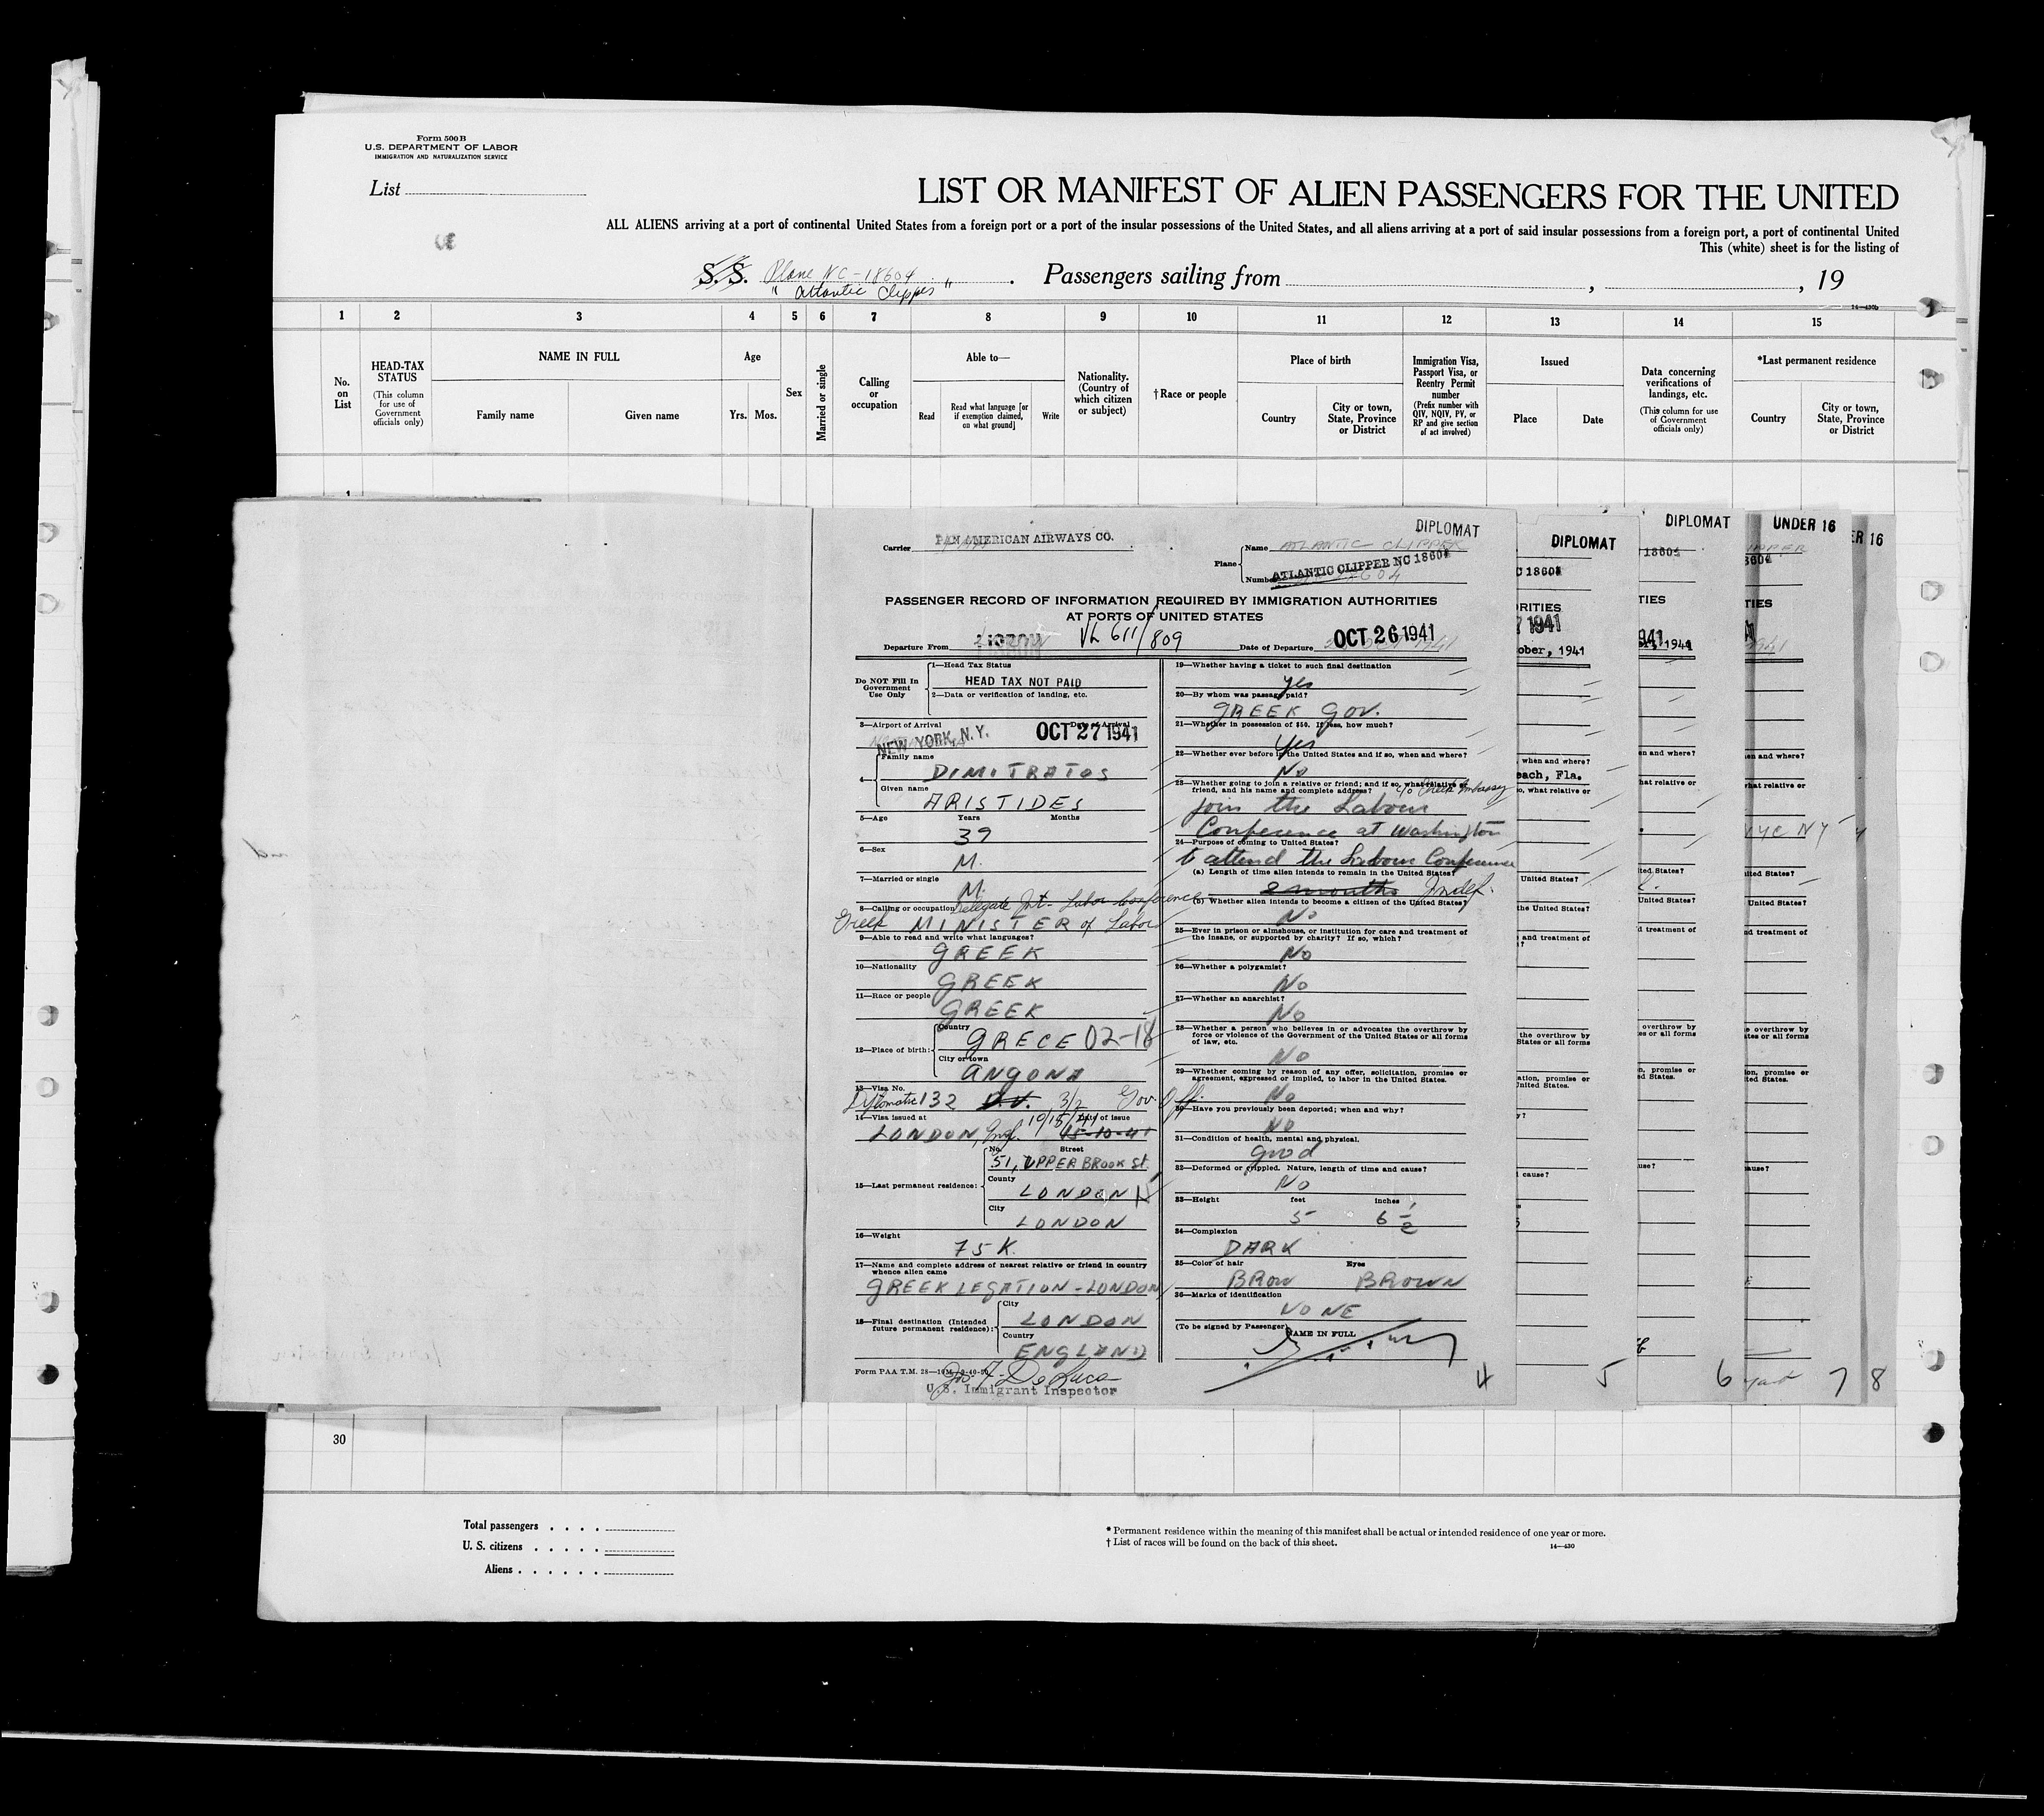 Form 500 B
U.S. DEPARTMENT OF LABOR
IMMIGRATION AND NATURALIZATION SERVICE
List
LIST OR MANIFEST OF ALIEN PASSENGERS FOR THE UNITED
ALL ALIENS arriving at a port of continental United States from a foreign port or a port of the insular possessions of the United States, and all aliens arriving at a port of said insular possessions from a foreign port, a port of continental United
This (white) sheet is for the listing of
S.S. Plane NC-18604
"Atlantic Clipper"
Passengers sailing from , , 19
14—430b
1 2 3 4 5 6 7 8 9 10 11 12 13 14 15
No. on List
HEAD-TAX STATUS (This column for use of Government officials only)
NAME IN FULL
Family name Given name
Age
Yrs. Mos.
Sex
Married or single
Calling or occupation
Able to—
Read Read what language [or if exemption claimed, on what ground] Write
Nationality. (Country of which citizen or subject)
†Race or people
Place of birth
Country City or town, State, Province or District
Immigration Visa, Passport Visa, or Reentry Permit number (Prefix number with QIV, NQIV, PV, or RP and give section of act involved)
Issued
Place Date
Data concerning verifications of landings, etc. (This column for use of Government officials only)
*Last permanent residence
Country City or town, State, Province or District
1
DIPLOMAT
Carrier PAN AMERICAN AIRWAYS CO.
Plane Name ATLANTIC CLIPPER
Number ATLANTIC CLIPPER NC 18604
PASSENGER RECORD OF INFORMATION REQUIRED BY IMMIGRATION AUTHORITIES
AT PORTS OF UNITED STATES
Departure From LISBON VL 611/809 Date of Departure OCT 26 1941
Do NOT Fill In Government Use Only
1—Head Tax Status
HEAD TAX NOT PAID
2—Data or verification of landing, etc.
3—Airport of Arrival Date of Arrival
NEW YORK, N.Y. OCT 27 1941
4—Family name
DIMITRATOS
Given name
ARISTIDES
5—Age Years Months
39
6—Sex
M.
7—Married or single
M.
8—Calling or occupation Delegate Int. Labor Conference
Greek MINISTER of Labor
9—Able to read and write what languages?
GREEK
10—Nationality
GREEK
11—Race or people
GREEK
12—Place of birth: Country
GRECE 02-18
City or town
ANGONA
13—Visa No.
Diplomatic 132 D.V. 3/2 Gov. Off.
14—Visa issued at Date of issue
LONDON, Engl. 10/15/41 15-10-41
15—Last permanent residence: No. Street
51, UPPER BROOK St.
County
LONDON
City
LONDON
16—Weight
75 K.
17—Name and complete address of nearest relative or friend in country whence alien came
GREEK LEGATION - LONDON
18—Final destination (Intended future permanent residence): City
LONDON
Country
ENGLAND
Form PAA T.M. 28
Jos. F. DeLuca
U.S. Immigrant Inspector
19—Whether having a ticket to such final destination
yes
20—By whom was passage paid?
GREEK GOV.
21—Whether in possession of $50. If less, how much?
Yes
22—Whether ever before in the United States and if so, when and where?
NO
23—Whether going to join a relative or friend; and if so, what relative or friend, and his name and complete address? c/o Greek Embassy
join the Labour
Conference at Washington
24—Purpose of coming to United States?
to attend the Labour Conference
(a) Length of time alien intends to remain in the United States?
2 months Indef.
(b) Whether alien intends to become a citizen of the United States?
No
25—Ever in prison or almshouse, or institution for care and treatment of the insane, or supported by charity? If so, which?
No
26—Whether a polygamist?
No
27—Whether an anarchist?
No
28—Whether a person who believes in or advocates the overthrow by force or violence of the Government of the United States or all forms of law, etc.
No
29—Whether coming by reason of any offer, solicitation, promise or agreement, expressed or implied, to labor in the United States.
No
30—Have you previously been deported; when and why?
NO
31—Condition of health, mental and physical.
good
32—Deformed or crippled. Nature, length of time and cause?
NO
33—Height feet inches
5 6 1/2
34—Complexion
DARK
35—Color of hair Eyes
BROW BROWN
36—Marks of identification
NONE
(To be signed by Passenger)
NAME IN FULL
4
DIPLOMAT
C 18604
ORITIES
7 1941
ober, 1941
, when and where?
each, Fla.
o, what relative or
United States?
the United States?
and treatment of
the overthrow by
States or all forms
ation, promise or
United States.
cause?
5
DIPLOMAT
18604
TIES
1941
6
UNDER 16
TIES
NYC NY
7
ER 16
8
30
Total passengers
U. S. citizens
Aliens
* Permanent residence within the meaning of this manifest shall be actual or intended residence of one year or more.
† List of races will be found on the back of this sheet.
14—430